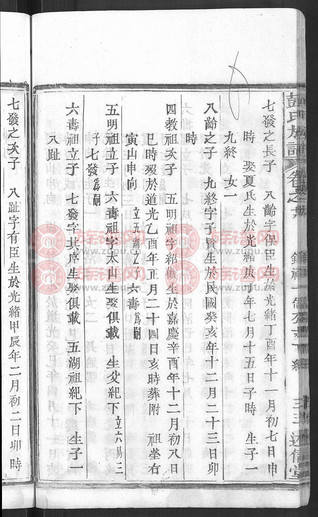 彭氏族譜
述信堂
七發之長子 八齡字保臣生於光緒丁酉年十一月初七日申
時 娶夏氏生於光緒庚子年七月十五日子時 生子一
九終 女一
八齡之子 九終字子賢生於民國癸亥年十二月二十三日卯
時
四教祖次子 五明祖字紹 生於嘉慶辛酉年十二月初八日
巳時歿於道光乙酉年正月二十四日亥時葬附 祖塋右
寅山申向 立五 之子 六壽為嗣
五明祖立子 六壽祖字大山生娶俱載 生父紀下 立六易三
子七發為嗣
六壽祖立子 七發字其序生娶俱載 五湖祖紀下 生子一
八趾
七發之次子 八趾字有臣生於光緒甲辰年二月初二日卯時